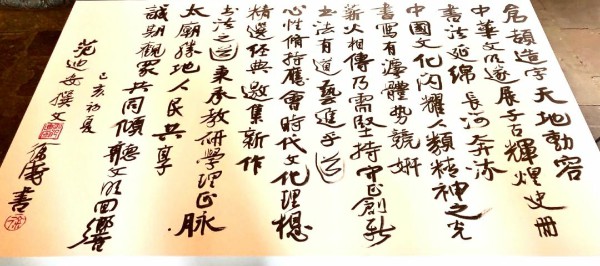 倉頡造字天地動容
中華文明遂展千古輝煌史冊
書法延綿長河奔流
中國文化閃耀人類精神之光
書寫有源體勢競妍
薪火相傳乃需堅持守正創新
書法有道藝進乎道
心性脩持應會時代文化理想
精選經典邀集新作
書法之道秉承教研學理正脉
太廟勝地人民共享
誠期觀眾共同傾聽文明回響
己亥初夏
范迪安撰文
書